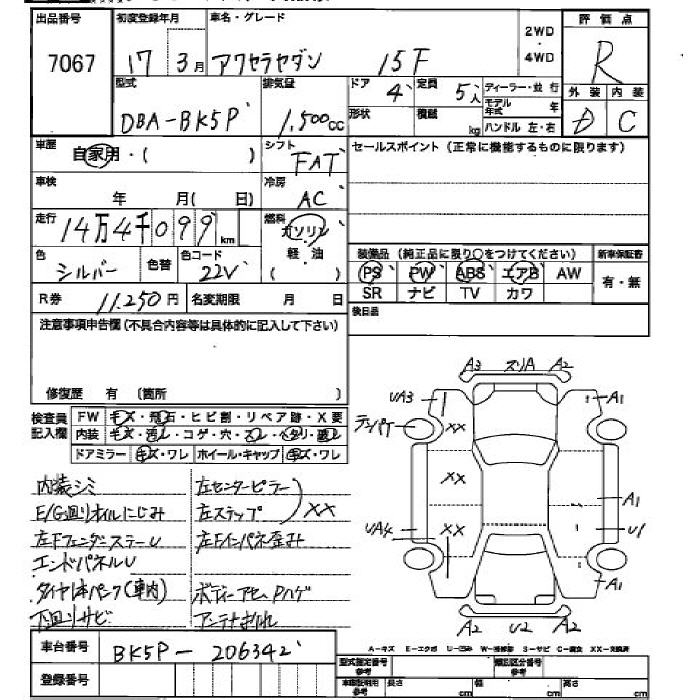 出品番号 初度登録年月 車名・グレード 2WD・4WD 評価点
7067 17 3月 アクセラセダン 15F R
型式 排気量 ドア 定員 ディーラー・並行 外装 内装
DBA-BK5P 1,500cc 4 5人 モデル年式 年 D C
形状 積載 kg ハンドル 左・右
車歴 自家用・( ) シフト FAT セールスポイント(正常に機能するものに限ります)
車検 年 月( 日) 冷房 AC
走行 14万4千099km 燃料 ガソリン 軽・油 ( )
色 シルバー 色替 色コード 22V
装備品(純正品に限り○をつけてください) 新車保証書
PS PW ABS エアB AW 有・無
SR ナビ TV カワ
R券 11,250円 名変期限 月 日 後日品
注意事項申告欄(不具合内容等は具体的に記入して下さい)
修復歴 有(箇所 )
検査員記入欄 FW キズ・飛石・ヒビ割・リペア跡・X要
内装 キズ・汚レ・コゲ・穴・スレ・ヘタリ・破レ
ドアミラー キズ・ワレ ホイール・キャップ キズ・ワレ
内装シミ 左センターピラー
E/G廻りオイルにじみ 左ステップ XX
左FフェンダーステーU 左Fインパネ歪み
エンドパネルU
タイヤ1本パンク(車内) ボディーアセ、Pハゲ
下廻りサビ アンテナ折れ
A3 スリA A2
UA3 A1
テンパケ XX
XX
A1
UA4 XX U1
A1
A2 U2 A2
A-キズ E-エクボ U-凹ミ W-補修跡 S-サビ C-腐食 XX-交換済
車台番号 BK5P-206342
登録番号
型式指定番号 参考 類別区分番号 参考
車庫証明用 参考 長さ cm 幅 cm 高さ cm